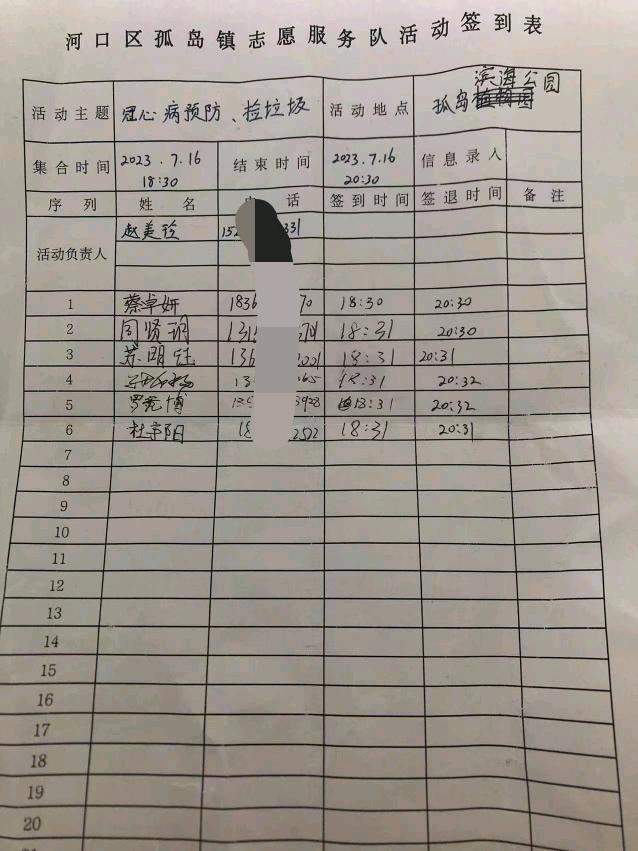 河口区孤岛镇志愿服务队活动签到表
滨海公园
活动主题 冠心病预防、捡垃圾 活动地点 孤岛
集合时间 2023.7.16 18:30 结束时间 2023.7.16 20:30 信息录入
序列 姓名 电话 签到时间 签退时间 备注
活动负责人 赵美玲 152 331
1 蔡卓妍 1836 70 18:30 20:30
2 周贤玥 131 18:31 20:30
3 苏明钰 136 001 18:31 20:31
4 13 65 18:31 20:32
5 博 3928 18:31 20:32
6 杜宇阳 18 2572 18:31 20:31
7
8
9
10
11
12
13
14
15
16
17
18
19
20